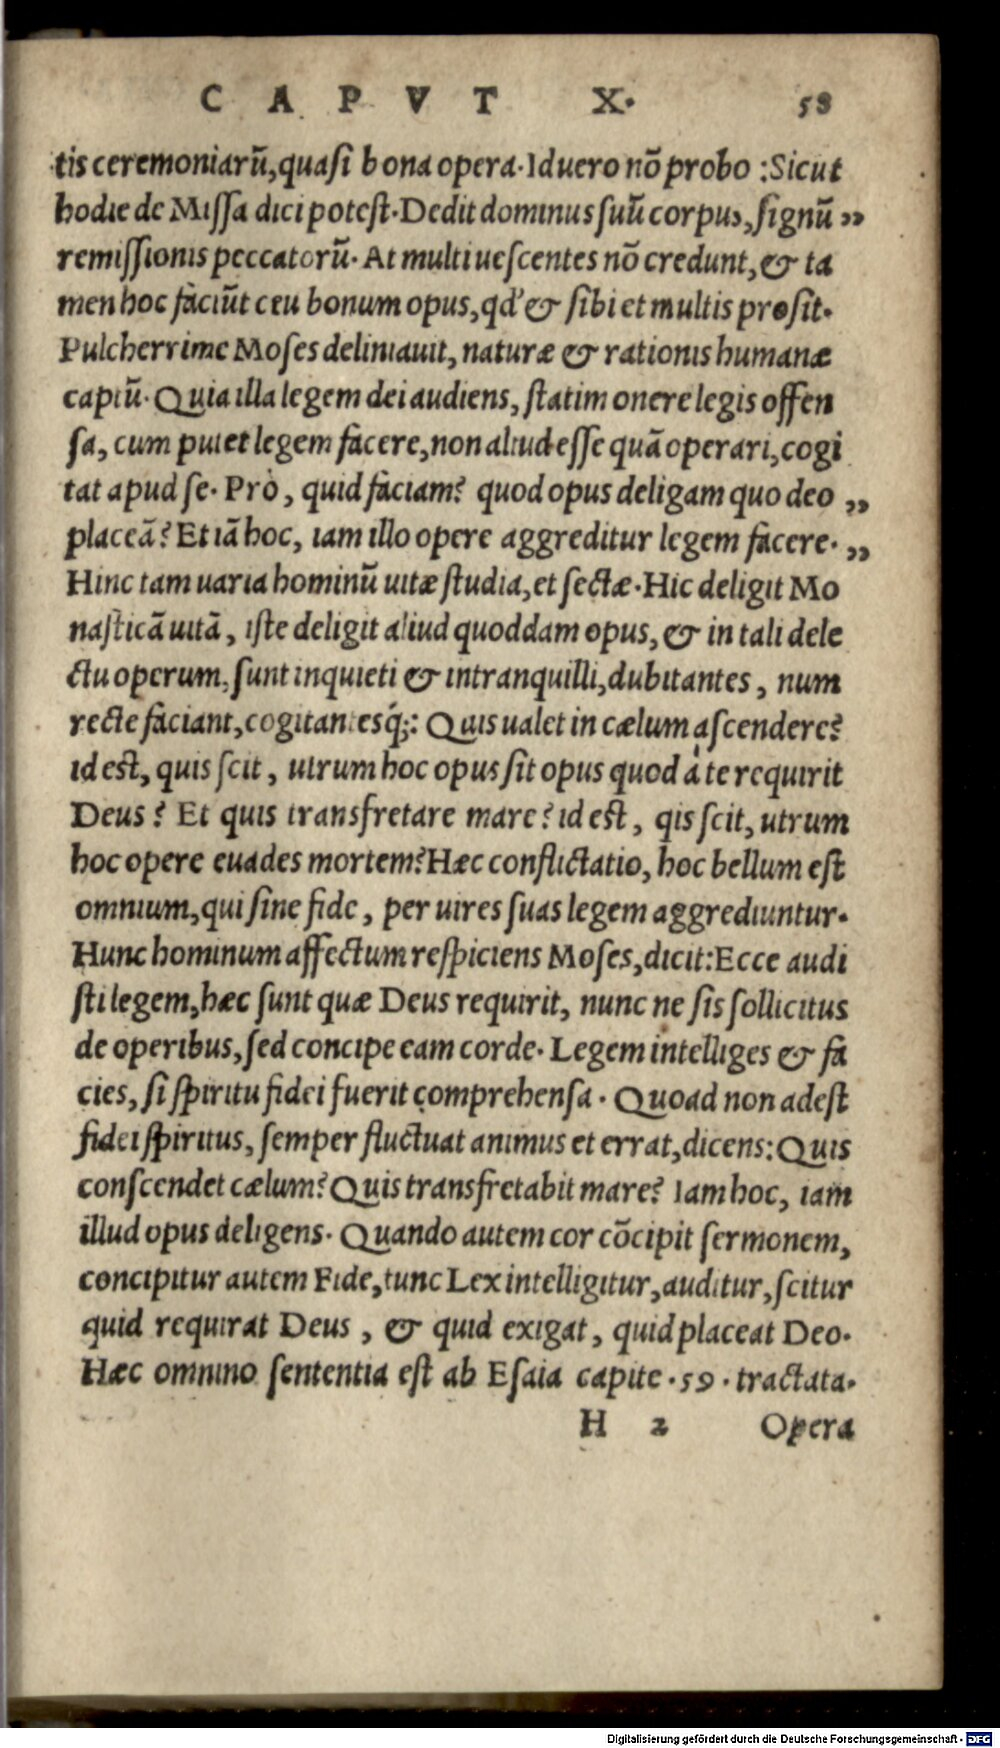 CAPVT X. 58
tis ceremoniarũ, quasi bona opera. Id uero nõ probo: Sicut
hodie de Missa dici potest. Dedit dominus suũ corpus, signũ „
remissionis peccatorũ. At multi uescentes nõ credunt, & ta
men hoc faciũt ceu bonum opus, qd' & sibi et multis prosit.
Pulcherrime Moses deliniauit, naturæ & rationis humanæ
captũ. Quia illa legem dei audiens, statim onere legis offen
sa, cum putet legem facere, non aliud esse quã operari, cogi
tat apud se. Prò, quid faciam? quod opus deligam quo deo „
placeã? Et iã hoc, iam illo opere aggreditur legem facere. „
Hinc tam uaria hominũ uitæ studia, et sectæ. Hic deligit Mo
nasticã uitã, iste deligit aliud quoddam opus, & in tali dele
ctu operum, sunt inquieti & intranquilli, dubitantes, num
recte faciant, cogitantesq́;: Quis ualet in cælum ascendere?
id est, quis scit, utrum hoc opus sit opus quod à te requirit
Deus? Et quis transfretare mare? id est, qis scit, utrum
hoc opere euades mortem? Hæc conflictatio, hoc bellum est
omnium, qui sine fide, per uires suas legem aggrediuntur.
Hunc hominum affectum respiciens Moses, dicit: Ecce audi
sti legem, hæc sunt quæ Deus requirit, nunc ne sis sollicitus
de operibus, sed concipe eam corde. Legem intelliges & fa
cies, si spiritu fidei fuerit comprehensa. Quoad non adest
fidei spiritus, semper fluctuat animus et errat, dicens: Quis
conscendet cælum? Quis transfretabit mare? Iam hoc, iam
illud opus deligens. Quando autem cor cõcipit sermonem,
concipitur autem Fide, tunc Lex intelligitur, auditur, scitur
quid requirat Deus, & quid exigat, quid placeat Deo.
Hæc omnino sententia est ab Esaia capite .59. tractata.
H 2 Opera
Digitalisierung gefördert durch die Deutsche Forschungsgemeinschaft - DFG